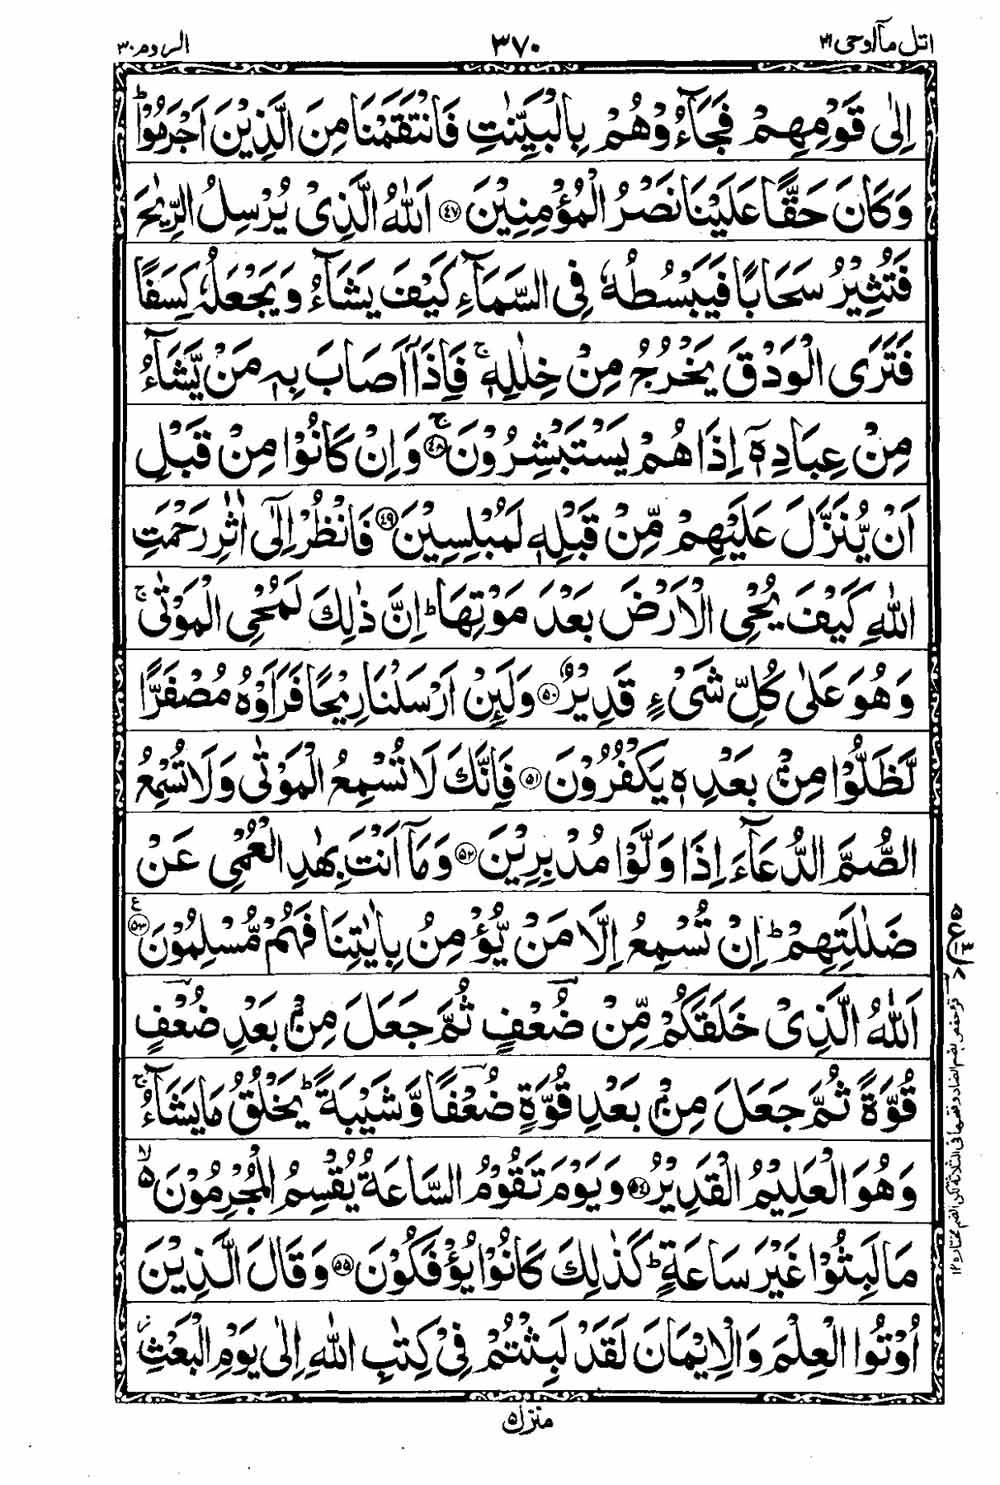 اتل ماۤ اوحی ۲۱
۳۷۰
الروم ۳۰
اِلٰى قَوْمِهِمْ فَجَآءُوْهُمْ بِالْبَيِّنٰتِ فَانْتَقَمْنَا مِنَ الَّذِيْنَ اَجْرَمُوْا ؕ
وَكَانَ حَقًّا عَلَيْنَا نَصْرُ الْمُؤْمِنِيْنَ ﴿۴۷﴾ اَللّٰهُ الَّذِيْ يُرْسِلُ الرِّيٰحَ
فَتُثِيْرُ سَحَابًا فَيَبْسُطُهٗ فِي السَّمَآءِ كَيْفَ يَشَآءُ وَيَجْعَلُهٗ كِسَفًا
فَتَرَى الْوَدْقَ يَخْرُجُ مِنْ خِلٰلِهٖ ۚ فَاِذَاۤ اَصَابَ بِهٖ مَنْ يَّشَآءُ
مِنْ عِبَادِهٖۤ اِذَا هُمْ يَسْتَبْشِرُوْنَ ﴿۴۸﴾ ۚ وَاِنْ كَانُوْا مِنْ قَبْلِ
اَنْ يُّنَزَّلَ عَلَيْهِمْ مِّنْ قَبْلِهٖ لَمُبْلِسِيْنَ ﴿۴۹﴾ فَانْظُرْ اِلٰۤى اٰثٰرِ رَحْمَتِ
اللّٰهِ كَيْفَ يُحْيِ الْاَرْضَ بَعْدَ مَوْتِهَا ؕ اِنَّ ذٰلِكَ لَمُحْيِ الْمَوْتٰى ۚ
وَهُوَ عَلٰى كُلِّ شَيْءٍ قَدِيْرٌ ﴿۵۰﴾ وَلَئِنْ اَرْسَلْنَا رِيْحًا فَرَاَوْهُ مُصْفَرًّا
لَّظَلُّوْا مِنْۢ بَعْدِهٖ يَكْفُرُوْنَ ﴿۵۱﴾ فَاِنَّكَ لَا تُسْمِعُ الْمَوْتٰى وَلَا تُسْمِعُ
الصُّمَّ الدُّعَآءَ اِذَا وَلَّوْا مُدْبِرِيْنَ ﴿۵۲﴾ وَمَاۤ اَنْتَ بِهٰدِ الْعُمْيِ عَنْ
ضَلٰلَتِهِمْ ؕ اِنْ تُسْمِعُ اِلَّا مَنْ يُّؤْمِنُ بِاٰيٰتِنَا فَهُمْ مُّسْلِمُوْنَ ﴿۵۳﴾ ع
اَللّٰهُ الَّذِيْ خَلَقَكُمْ مِّنْ ضُعْفٍ ثُمَّ جَعَلَ مِنْۢ بَعْدِ ضُعْفٍ
قُوَّةً ثُمَّ جَعَلَ مِنْۢ بَعْدِ قُوَّةٍ ضُعْفًا وَّشَيْبَةً ؕ يَخْلُقُ مَا يَشَآءُ ۚ
وَهُوَ الْعَلِيْمُ الْقَدِيْرُ ﴿۵۴﴾ وَيَوْمَ تَقُوْمُ السَّاعَةُ يُقْسِمُ الْمُجْرِمُوْنَ ۙ۵
مَا لَبِثُوْا غَيْرَ سَاعَةٍ ؕ كَذٰلِكَ كَانُوْا يُؤْفَكُوْنَ ﴿۵۵﴾ وَقَالَ الَّذِيْنَ
اُوْتُوا الْعِلْمَ وَالْاِيْمَانَ لَقَدْ لَبِثْتُمْ فِيْ كِتٰبِ اللّٰهِ اِلٰى يَوْمِ الْبَعْثِ ؗ
منزل ۵